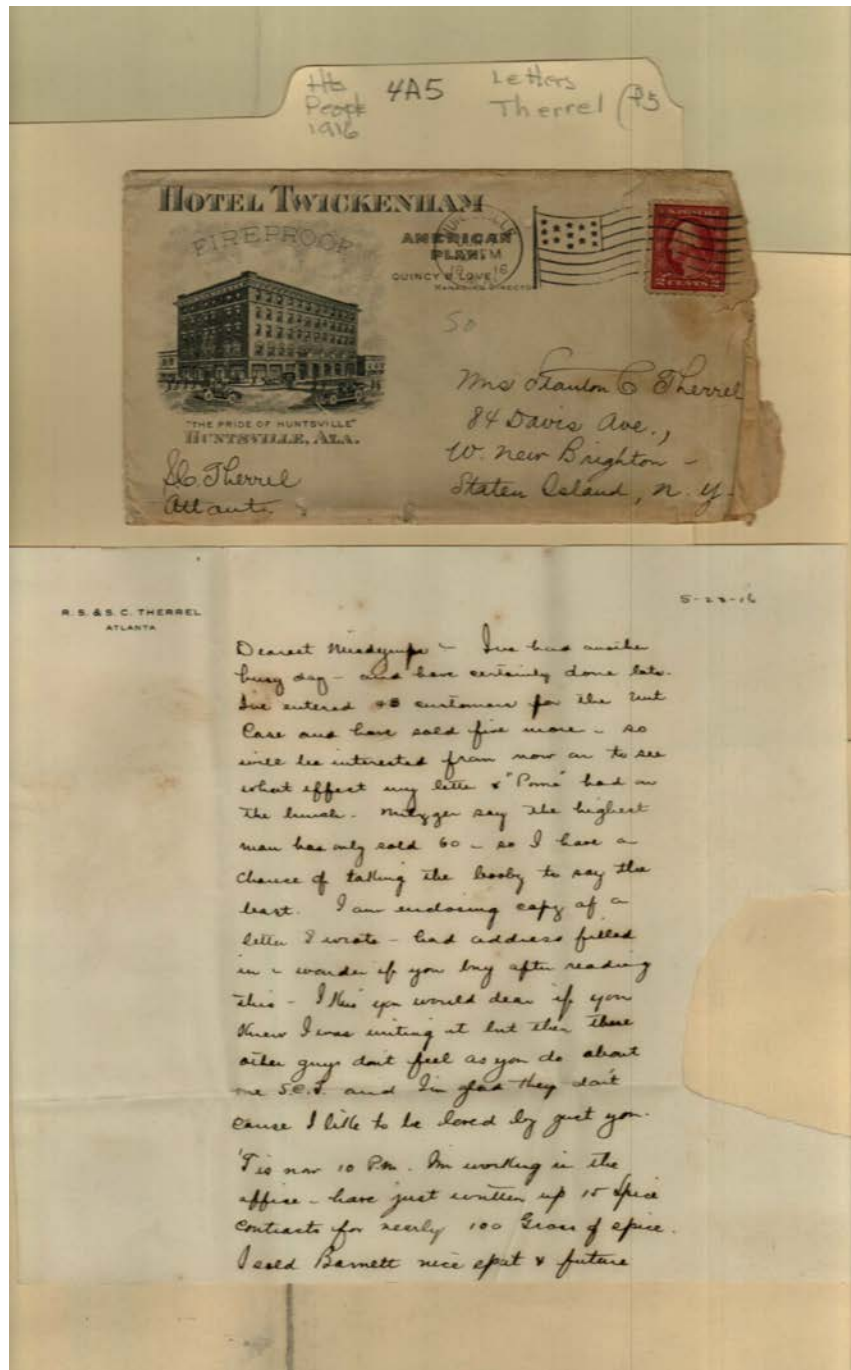 Hts
People
1916
4A5
Letters
Therrel
P5
HOTEL TWICKENHAM
FIREPROOF
AMERICAN
PLAN
QUINCY B. LOVE
MANAGING DIRECTOR
16
2 CENTS 2
50
"THE PRIDE OF HUNTSVILLE"
HUNTSVILLE, ALA.
S.C. Therrel
Atlanta
Mrs Stanton C Therrel
84 Davis Ave.,
W. New Brighton -
Staten Island, N.Y.
R. S. & S. C. THERREL
ATLANTA
5-23-16
Dearest - I've had another
busy day - and have certainly done lots.
I've entered 48 customers for the Unit
Case and have sold five more - so
will be interested from now on to see
what effect my letter & "Pome" had on
the bunch. Metzger say the highest
man has only sold 60 - so I have a
chance of taking the booby to say the
least. I am enclosing copy of a
letter I wrote - had address filled
in - wonder if you buy after reading
this - I you would dear if you
knew I was writing it but then these
other guys don't feel as you do about
one S.C.T. and I'm glad they don't
cause I like to be loved by just you.
'Tis now 10 P.M. I'm working in the
office - have just written up 15 Spice
contracts for nearly 100 Gross of spice.
I sold Barnett nice spot & future